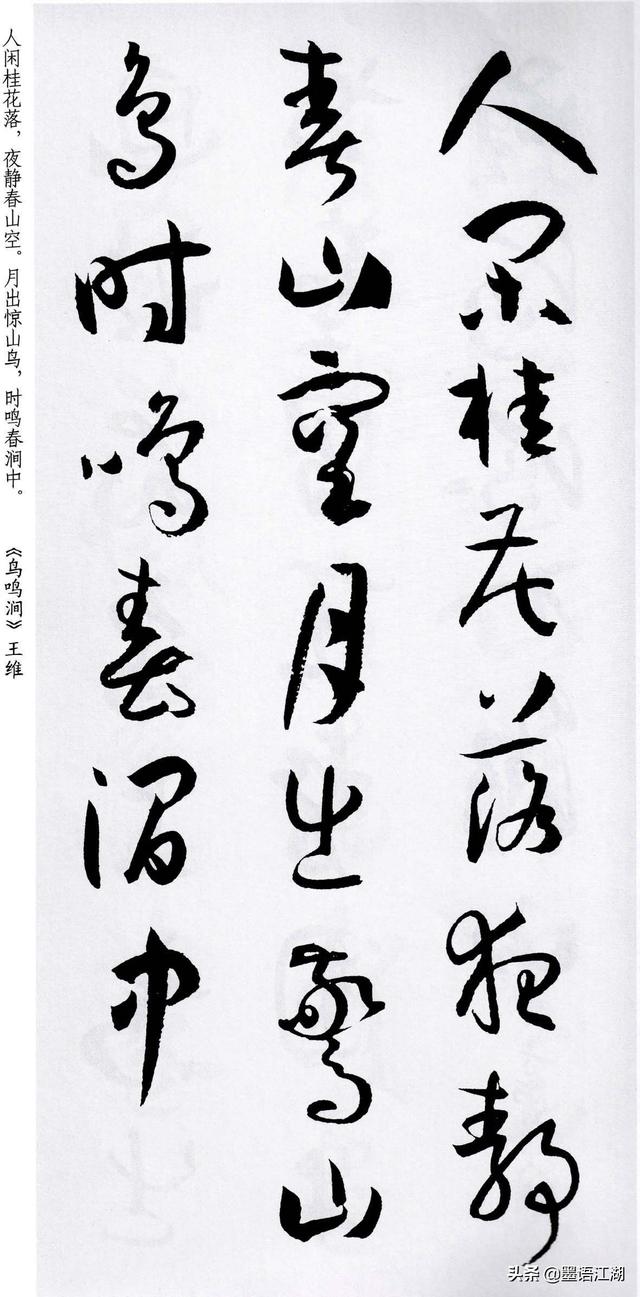 人闲桂花落夜静
春山空月出惊山
鸟时鸣春涧中
人闲桂花落，夜静春山空。月出惊山鸟，时鸣春涧中。 《鸟鸣涧》王维
头条 @墨语江湖